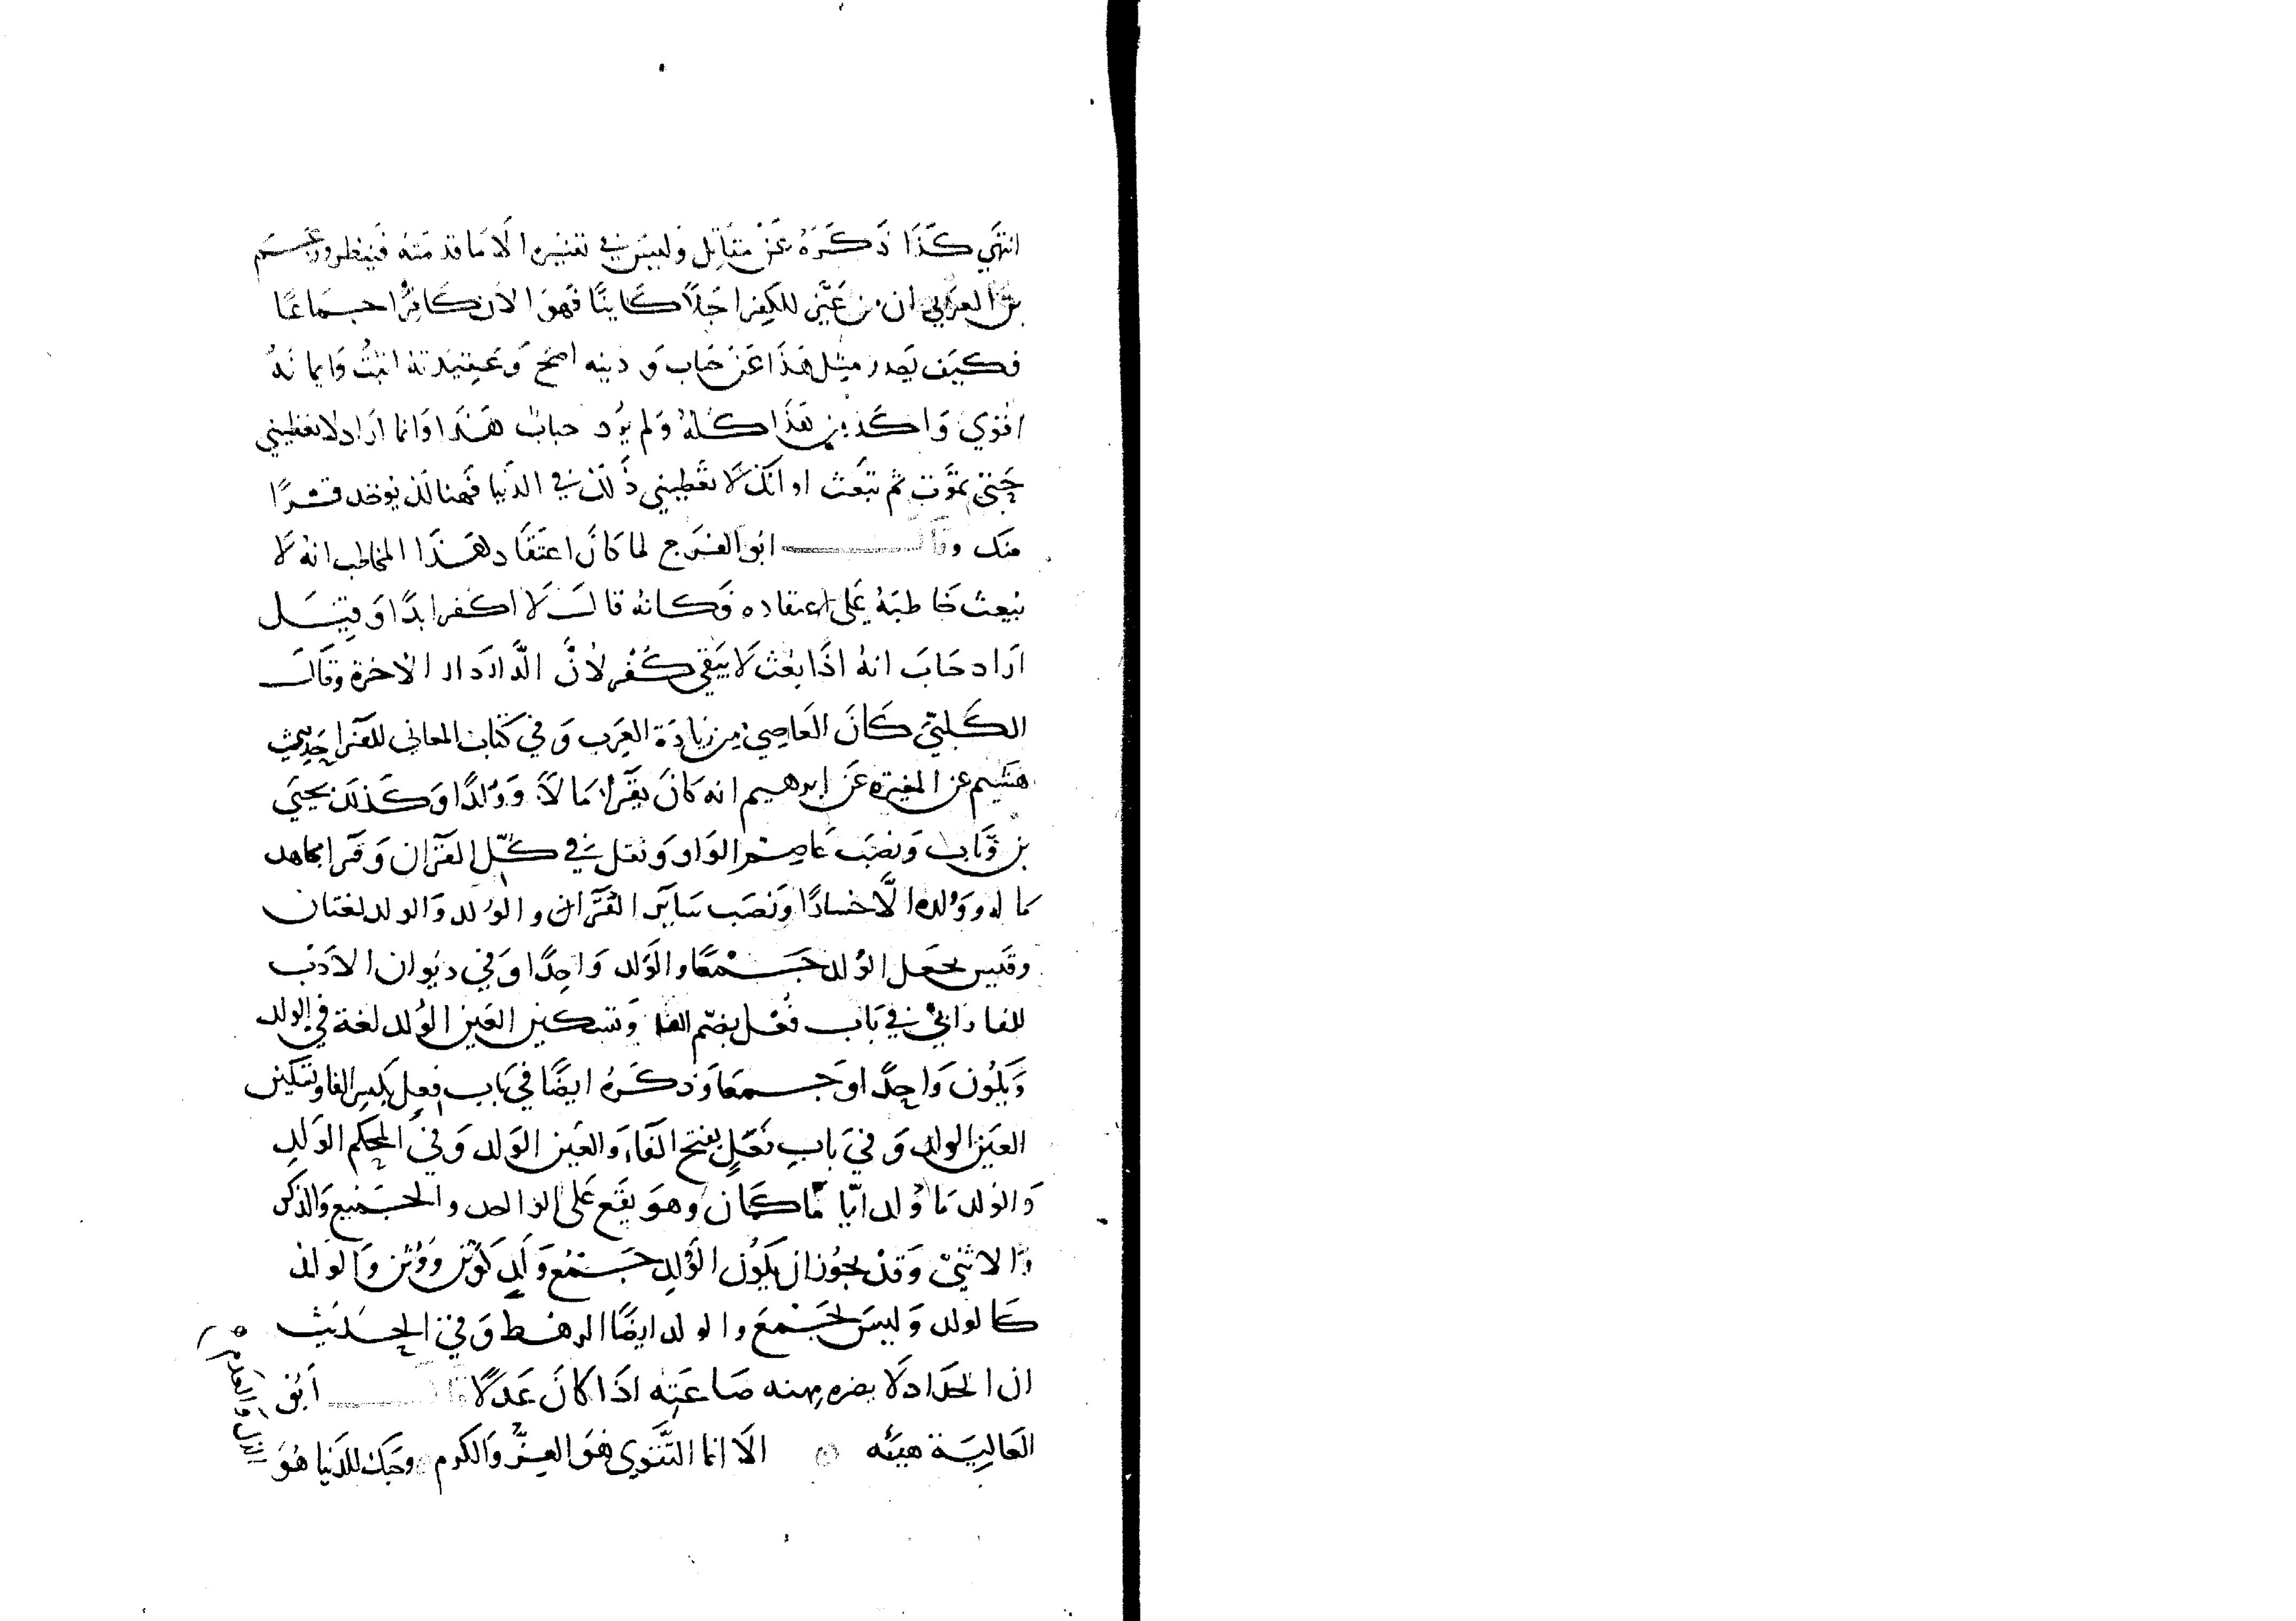 انتهَي كَذَا ذَكَرَهُ عَنْ مقَاتِل وَليسَ في تفسيره الّا مَا قدمتهُ فَينظر وزعَم
بن العَرَبي ان من عَيَّن للكفر اجَلاً كايِنًا فهوَ الان كَافِرٌ اجماعًا
فكيَف يَصدر مِثل هَذَا عَن خَباب وَ دينه اصَحّ وَعَقيدته اثبتُ وَايمانهُ
اقوي وَ اكَد مِن هَذا كلهُ وَلم يُرد خبابٌ هَذَا وَانما ارَاد لا تعطيني
حَتى تموَت ثم تبعَث او انكَ لَا تعُطيني ذَلك في الدنيا فَهنالك يوخَد قسْرًا
منك وقَالَ ابوَ الفَرَج لما كَانَ اعتقَاد هَذَا المخاطب انهُ لَا
يُبعث خَاطبَهُ عَلى اعتقاده فَكانهُ قالَ لَا اكفر ابدًا وَ قِيَل
ارَاد خَبابَ انهُ اذَا بعُث لَا يَبقي كُفْر لأنَّ الدَّار دَار الاخرة وقَالَ
الكَلبيّ كَانَ العَاصِي مِن زنادَقة العَرب وَ في كتاب المعاني للفرا حَديث
هشَيم عن المغيرَة عَن ابرهيم انه كَانَ يقَرا مَالًا وَوُلدًا وَكَذلك يَحيَي
بن وَثاب وَنصَب عَاصم الوَاو وَ ثقل في كُلّ القرآن وَقَرا مجاهد
مَاله وَوُلده الَّا خسارًا وَنصَب سَاير القُرَان والوُلد وَالولد لغتان
وقَيس تجعَل الوُلد جَمْعًا والوَلد وَاحِدًا وَفي ديوان الادَب
للفارَابي في بَاب فُعْل بضم الفا وَتسكين العَين الوُلد لغة في الولد
وَيكُون وَاحِدًا اوَ جَمعَا وَذكَرهُ ايضًا في بَاب فِعل بكسر الفا وتسكين
العَين الولد وَ في بَابِ فَعَلٍ بفتح الفَاء وَالعَين الوَلد وَفي المحكَم الوَلد
وَ الوُلد مَا وُلد ايّا مّا كَان وهوَ يقَع عَلى الواحد والجَميع وَالذكر
وَالانثيَ وَقدْ يجوُز ان يَكوُن الوُلد جَمْعَ وَلَدٍ كوَثن وَوُثن وَالولد
كَالولد وَليسَ بجَمْعَ والولد ايضًا الرهط وَ في الحَديث
ان الحَدَاد لَا يضره مِهنه صَاعَته اذَا كَانَ عَدلًا قَالَ ابَو
العَاليَة هيبَته الَا انما التَّقوي هَو العِزُّ وَالكرم وحَبك للدنيا هُوَ
الذل وَالعدَم